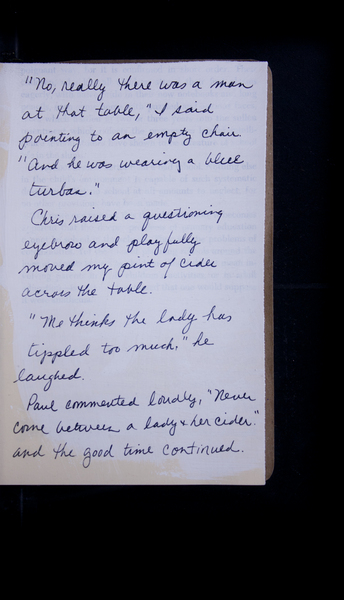 "No, really there was a man
at that table," I said
pointing to an empty chair.
"And he was wearing a blue
turban."
Chris raised a questioning
eyebrow and playfully
moved my pint of cider
across the table.
"Me thinks the lady has
tippled too much," he
laughed.
Paul commented loudly, "Never
come between a lady & her cider."
and the good time continued.